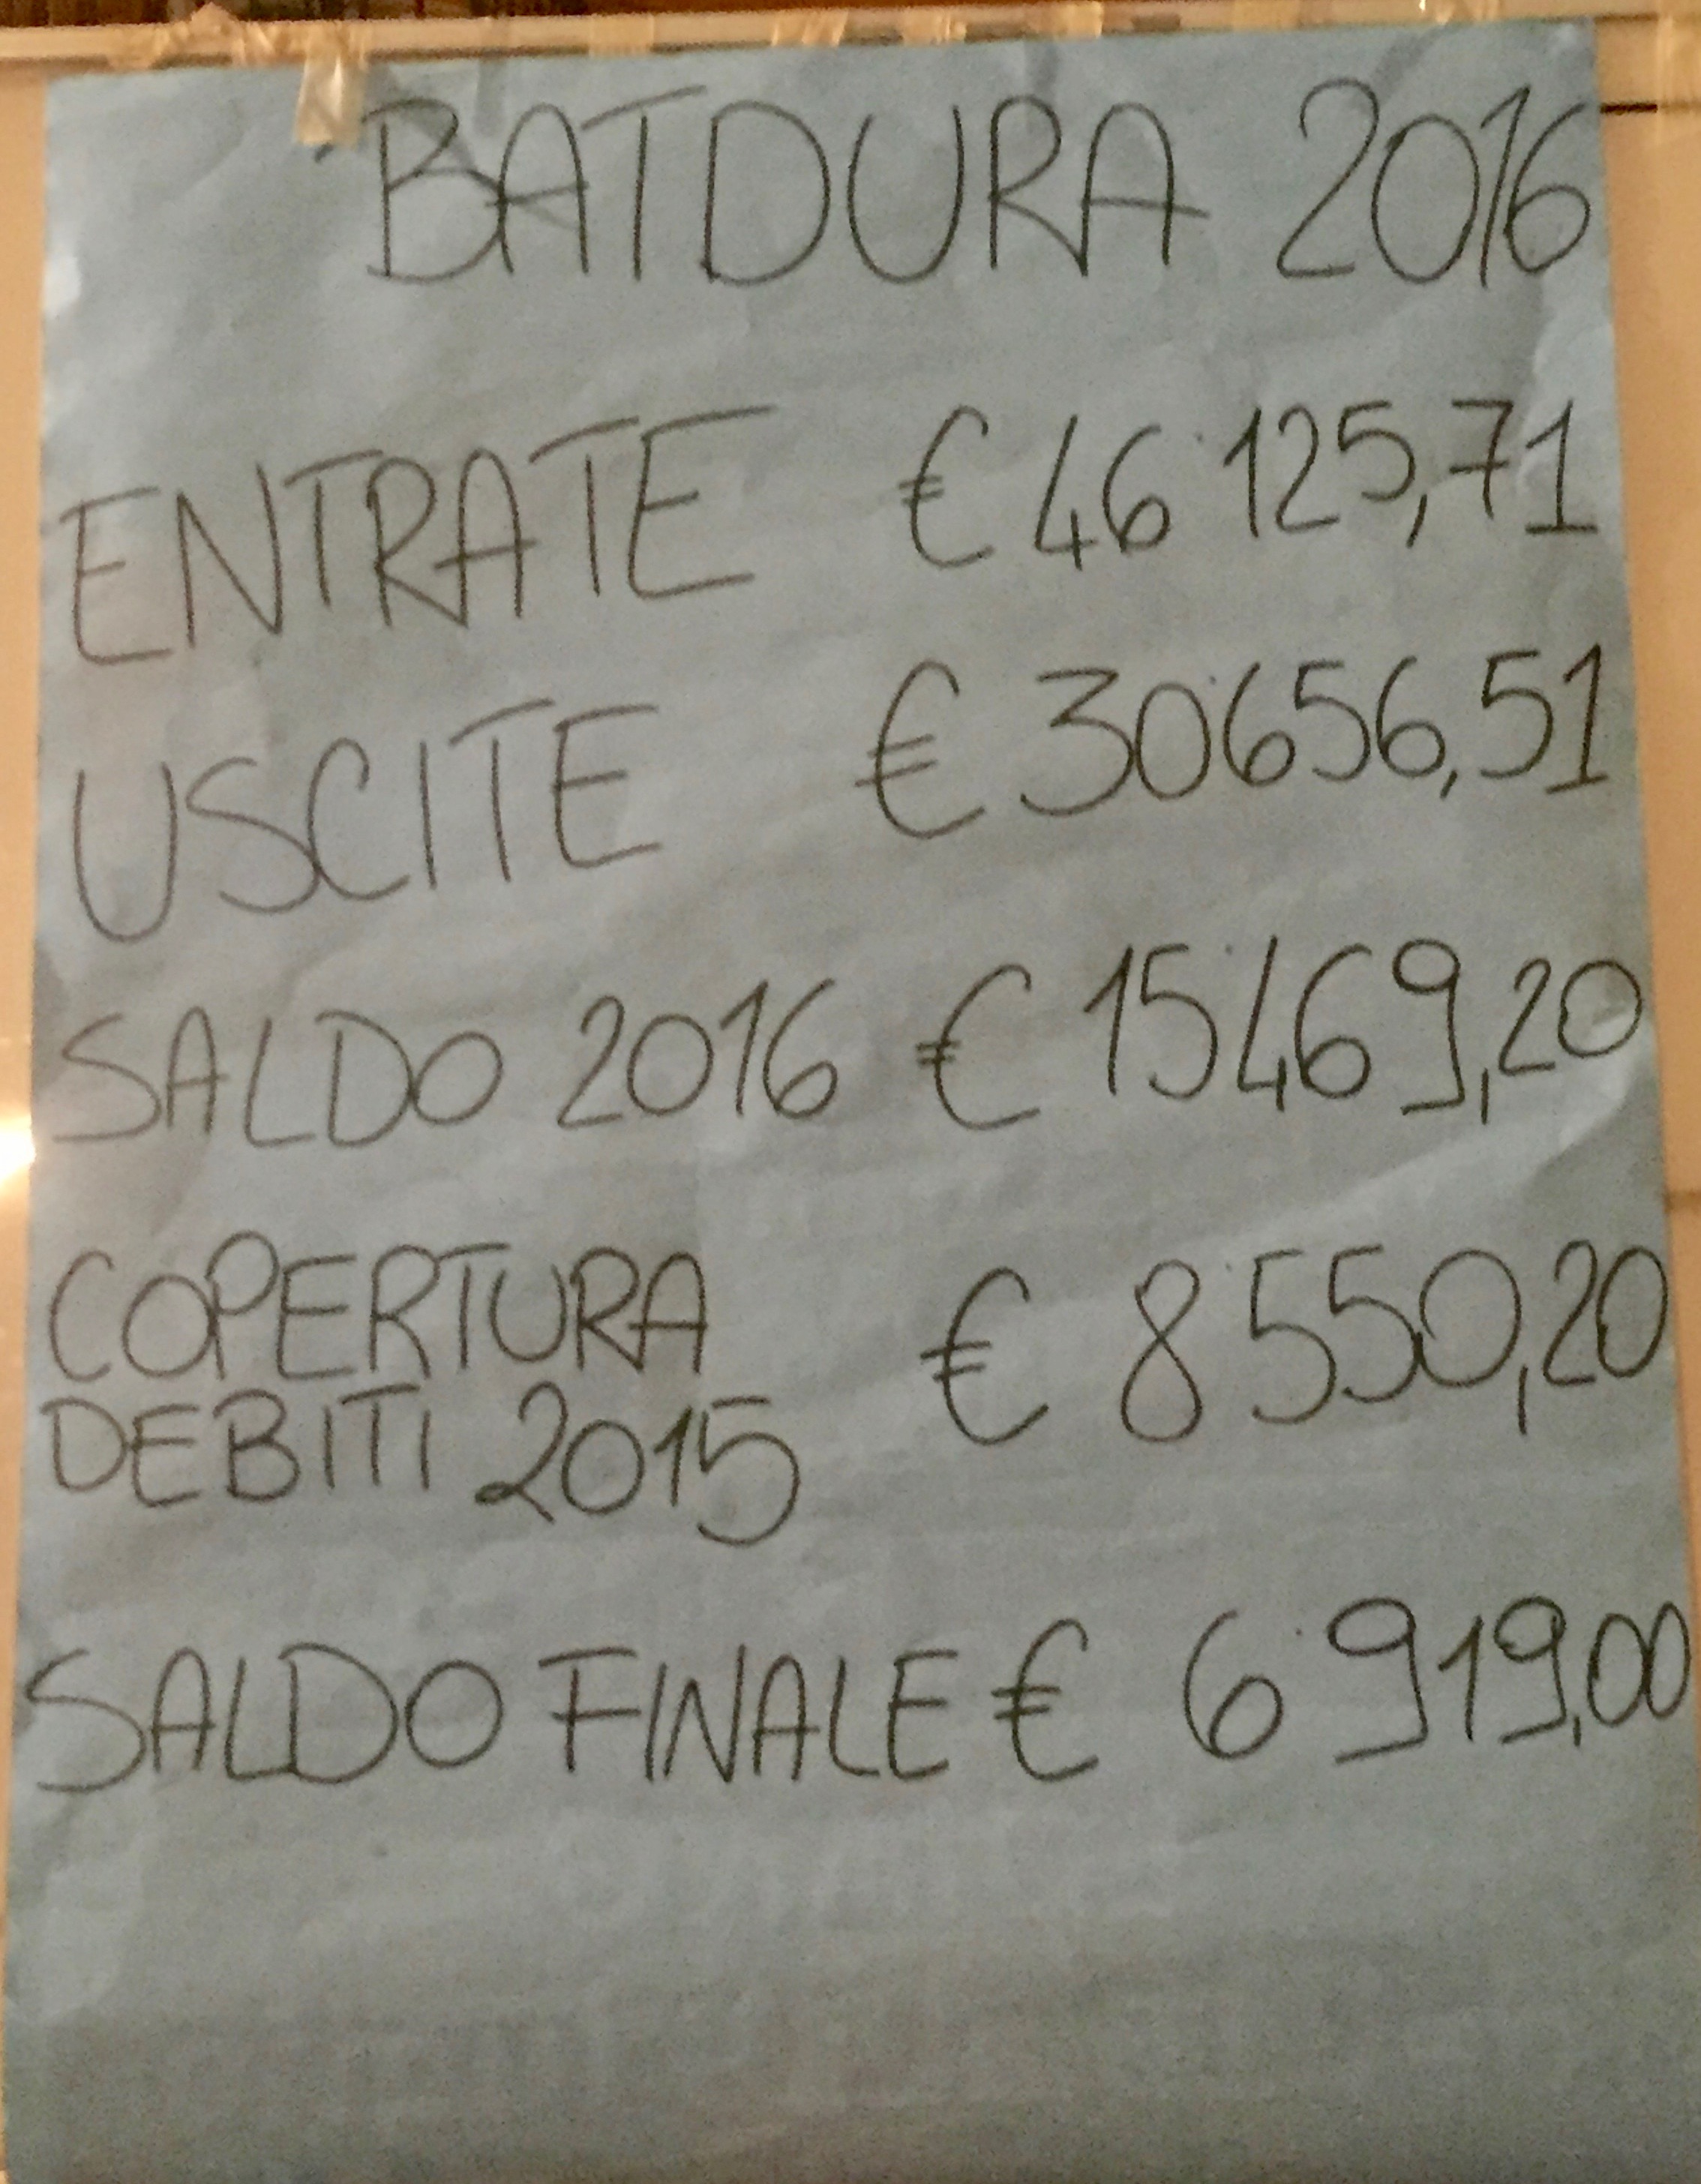 BATDURA 2016
ENTRATE € 46˙125,71
USCITE € 30˙656,51
SALDO 2016 € 15˙469,20
COPERTURA
DEBITI 2015 € 8˙550,20
SALDO FINALE € 6˙919,00